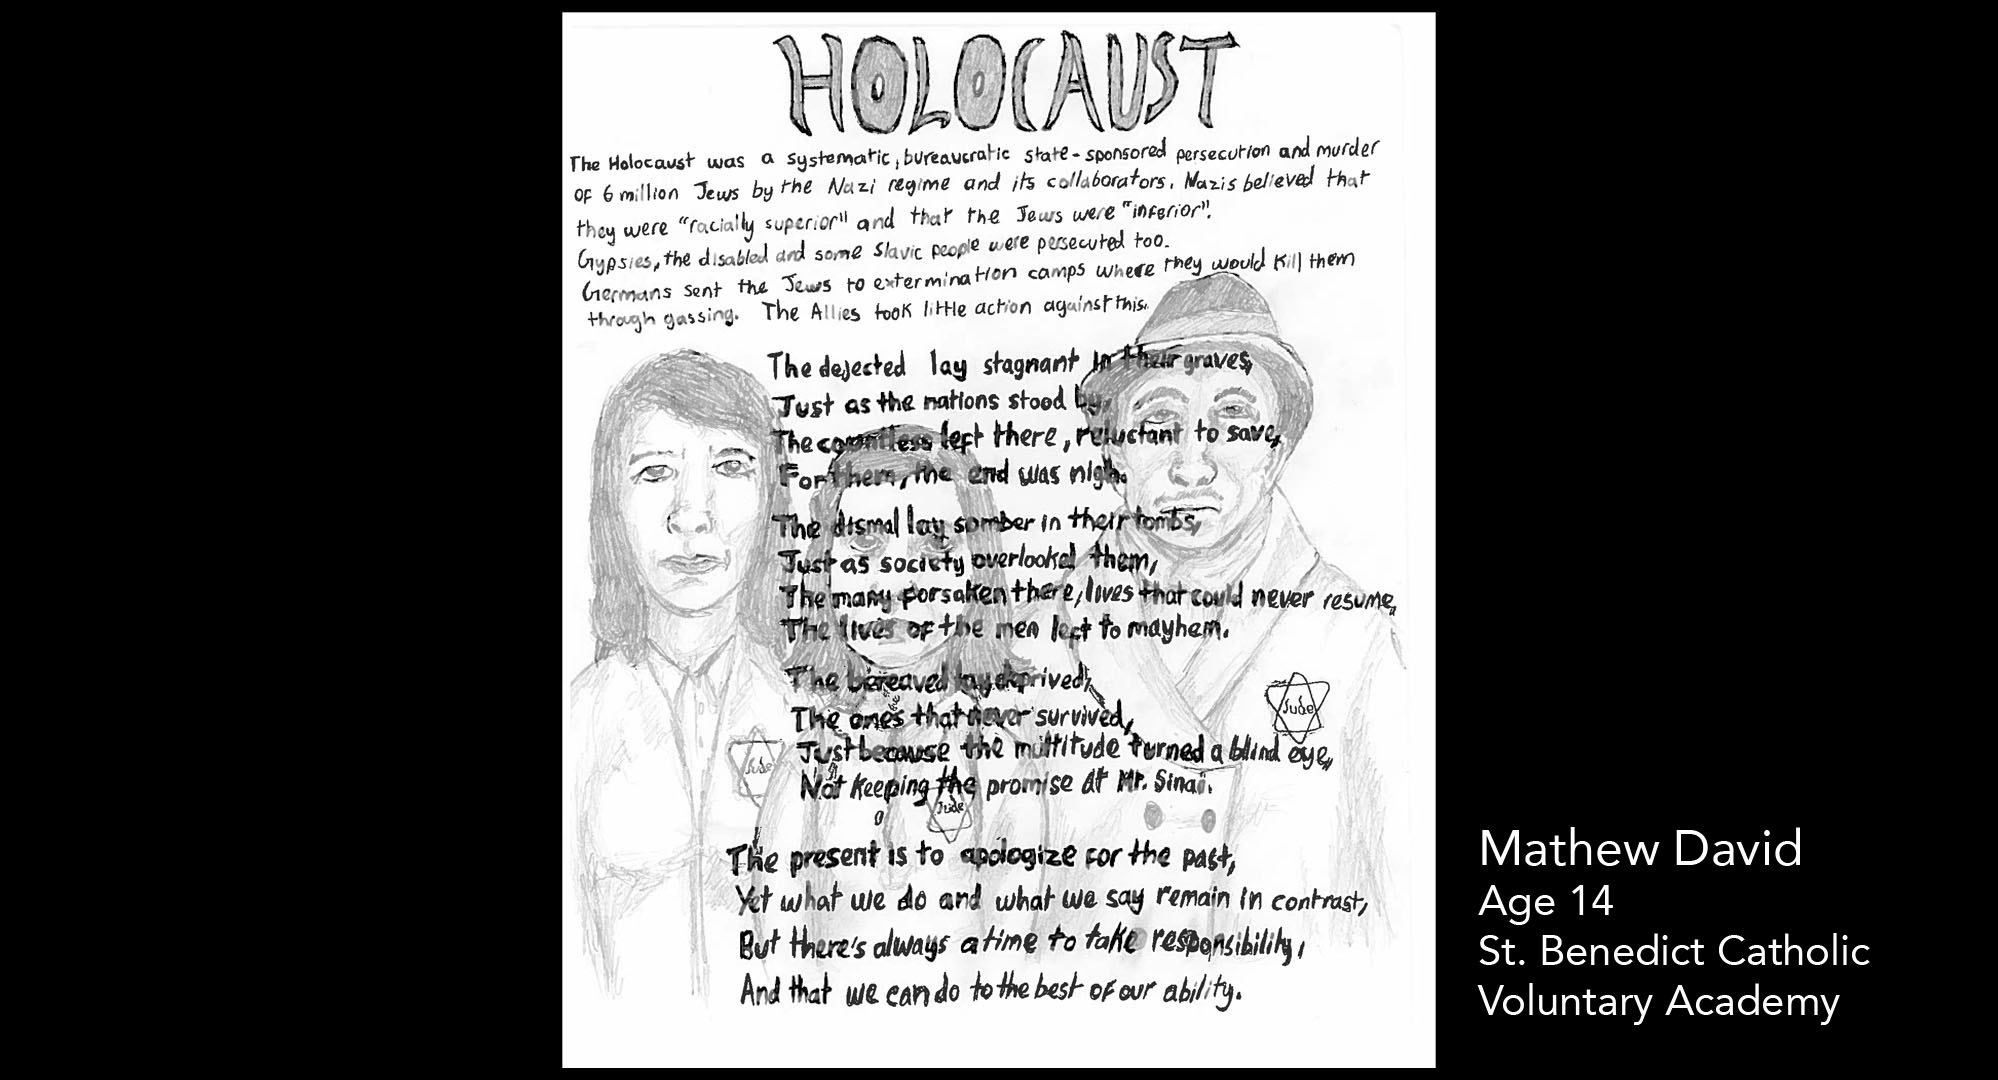 HOLOCAUST
The Holocaust was a systematic, bureaucratic state-sponsored persecution and murder
of 6 million Jews by the Nazi regime and its collaborators. Nazis believed that
they were "racially superior" and that the Jews were "inferior".
Gypsies, the disabled and some Slavic people were persecuted too.
Germans sent the Jews to extermination camps where they would kill them
through gassing. The Allies took little action against this.
The dejected lay stagnant in their graves,
Just as the nations stood by,
The countless left there, reluctant to save,
For them, the end was nigh.
The dismal lay somber in their tombs,
Just as society overlooked them,
The many forsaken there, lives that could never resume,
The lives of the men left to mayhem.
The bereaved lay deprived,
The ones that never survived,
Just because the multitude turned a blind eye,
Not keeping the promise at Mt. Sinai.
The present is to apologize for the past,
Yet what we do and what we say remain in contrast,
But there's always a time to take responsibility,
And that we can do to the best of our ability.
Jude
Jude
Jude
Mathew David
Age 14
St. Benedict Catholic
Voluntary Academy